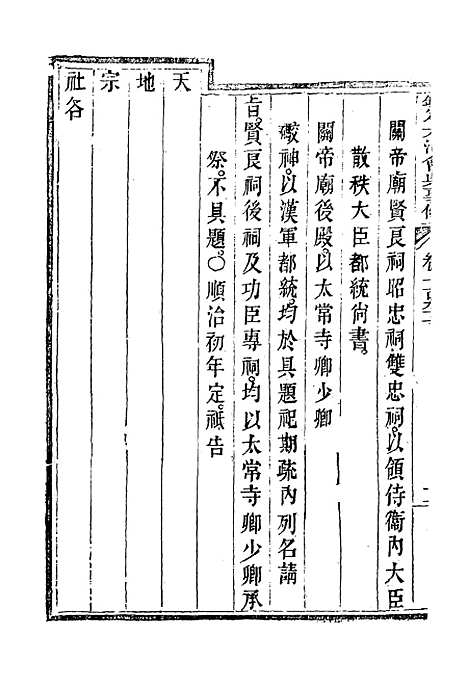 關帝廟賢良祠昭忠祠雙忠祠。以領侍衞內大臣
散秩大臣都統尚書。
關帝廟後殿。以太常寺卿少卿
礮神。以漢軍都統。均於具題祀期疏內列名請
旨。賢良祠後祠及功臣專祠。均以太常寺卿少卿承
祭。不具題。○順治初年定。祗告
天
地
宗
社各